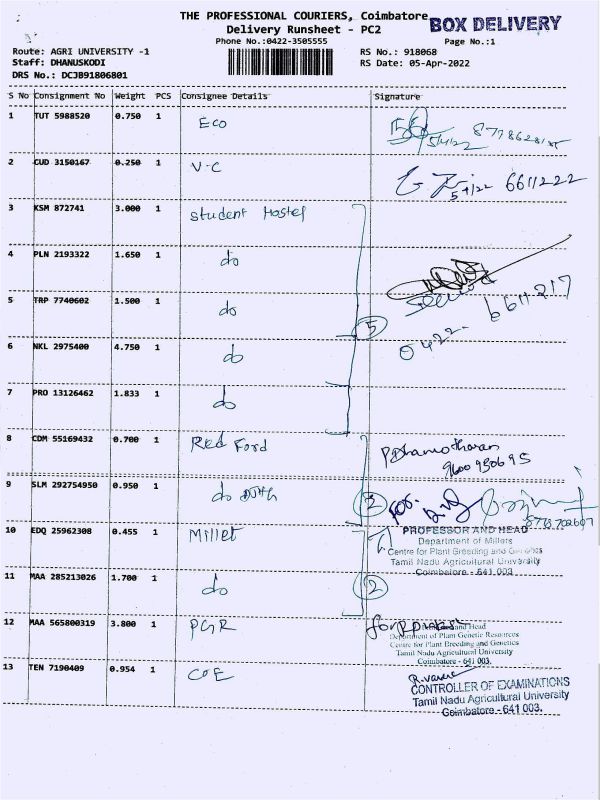 THE PROFESSIONAL COURIERS, Coimbatore
BOX DELIVERY
Delivery Runsheet - PC2
Phone No.:0422-3505555
Page No.:1
Route: AGRI UNIVERSITY -1
RS No.: 918068
Staff: DHANUSKODI
RS Date: 05-Apr-2022
DRS No.: DCJB91806801
S No Consignment No Weight PCS Consignee Details Signature
1 TUT 5988520 0.750 1 Eco
5/4/22
2 CUD 3150167 0.250 1 V-C
5/4/22 6611222
3 KSM 872741 3.000 1 Student Hostel
4 PLN 2193322 1.650 1 do
5 TRP 7740602 1.500 1 do
6611217
5
0422-
6 NKL 2975400 4.750 1 do
7 PRO 13126462 1.833 1 do
8 CDM 55169432 0.700 1 Red Ford
P Dhamotharan
9600950695
9 SLM 292754950 0.950 1 do
2 for
PROFESSOR AND HEAD
10 EDQ 25962308 0.455 1 Millet
Department of Millets
Centre for Plant Breeding and Genetics
Tamil Nadu Agricultural University
Coimbatore - 641 003
11 MAA 285213026 1.700 1 do
2
12 MAA 565800319 3.800 1 PGR
for
Professor and Head
Department of Plant Genetic Resources
Centre for Plant Breeding and Genetics
Tamil Nadu Agricultural University
Coimbatore - 641 003.
13 TEN 7190409 0.954 1 COE
CONTROLLER OF EXAMINATIONS
Tamil Nadu Agricultural University
Coimbatore - 641 003.